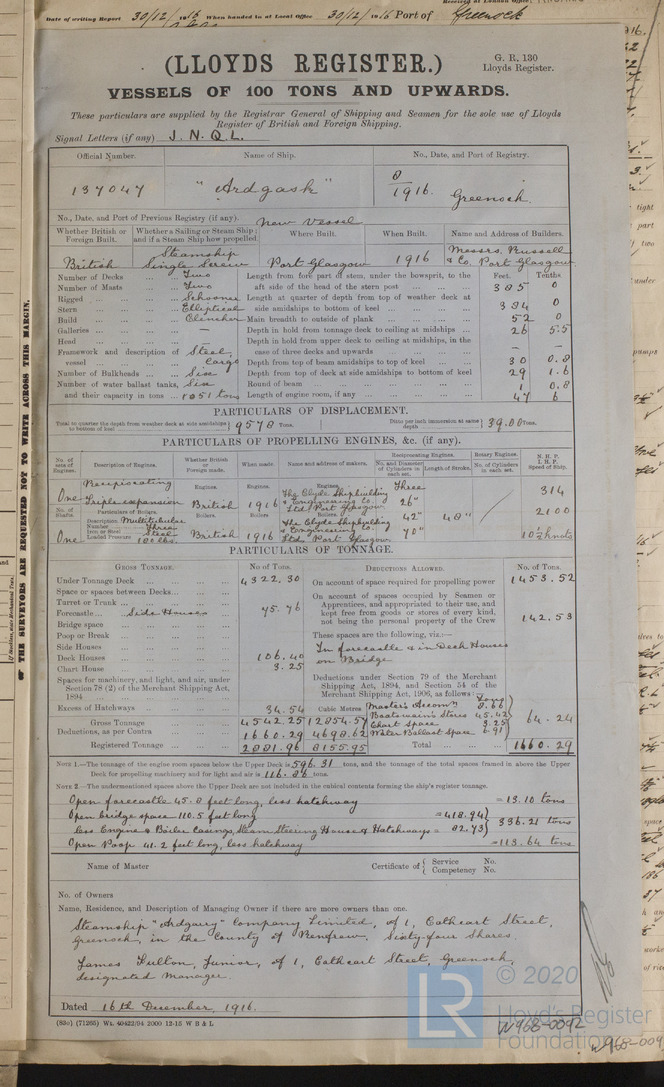 Date of writing Report 30/12/1916 When handed in at Local Office 30/12/1916 Port of Greenock
(LLOYDS REGISTER.)
G. R. 130
Lloyds Register.
VESSELS OF 100 TONS AND UPWARDS.
These particulars are supplied by the Registrar General of Shipping and Seamen for the sole use of Lloyds
Register of British and Foreign Shipping.
Signal Letters (if any) J. N. Q. L.
Official Number. Name of Ship. No., Date, and Port of Registry.
137047 "Ardgask" 8/1916 Greenock.
No., Date, and Port of Previous Registry (if any). New Vessel
Whether British or Foreign Built. Whether a Sailing or Steam Ship; and if a Steam Ship how propelled Where Built. When Built. Name and Address of Builders.
British Steamship Single Screw Port Glasgow 1916 Messrs. Russell & Co. Port Glasgow
Number of Decks Two Length from fore part of stem, under the bowsprit, to the Feet. Tenths
Number of Masts Two aft side of the head of the stern post 385 0
Rigged Schooner Length at quarter of depth from top of weather deck at
Stern Elliptical side amidships to bottom of keel 384 0
Build Clencher Main breadth to outside of plank 52 0
Galleries — Depth in hold from tonnage deck to ceiling at midships 26 5.5
Head Depth in hold from upper deck to ceiling at midships, in the
Framework and description of Steel case of three decks and upwards — —
vessel Cargo Depth from top of beam amidships to top of keel 30 0.8
Number of Bulkheads Six Depth from top of deck at side amidships to bottom of keel 29 1.6
Number of water ballast tanks, Six Round of beam 1 0.8
and their capacity in tons 1051 tons Length of engine room, if any 47 6
PARTICULARS OF DISPLACEMENT.
Total to quarter the depth from weather deck at side amidships to bottom of keel 9578 Tons. Ditto per inch immersion at same depth 39.00 Tons.
PARTICULARS OF PROPELLING ENGINES, &c. (if any).
No. of sets of Engines. Description of Engines. Whether British or Foreign made. When made. Name and address of makers. Reciprocating Engines. Rotary Engines. N.H.P. I.H.P. Speed of Ship.
No. and Diameter of Cylinders in each set. Length of Stroke. No. of Cylinders in each set.
One Reciprocating Triple expansion Engines. British Engines. 1916 Engines. The Clyde Shipbuilding & Engineering Co. Ltd. Port Glasgow Three 26" 42" 70" 48" 314
No. of Shafts. Particulars of Boilers. Boilers. Boilers. Boilers. 2100
One Description Multitubular Number Three Iron or Steel Steel Loaded Pressure 180 lbs. British 1916 The Clyde Shipbuilding & Engineering Co. Ltd. Port Glasgow 10½ knots
PARTICULARS OF TONNAGE.
GROSS TONNAGE. No. of Tons. DEDUCTIONS ALLOWED. No. of Tons.
Under Tonnage Deck 4322.30 On account of space required for propelling power 1453.52
Space or spaces between Decks On account of spaces occupied by Seamen or
Turret or Trunk Apprentices, and appropriated to their use, and
Forecastle Side Houses 75.76 kept free from goods or stores of every kind,
Bridge space not being the personal property of the Crew 142.53
Poop or Break These spaces are the following, viz.:—
Side Houses In forecastle & in Deck Houses
Deck Houses 106.40 on Bridge
Chart House 3.25
Spaces for machinery, and light, and air, under Deductions under Section 79 of the Merchant
Section 78 (2) of the Merchant Shipping Act, Shipping Act, 1894, and Section 54 of the
1894 Merchant Shipping Act, 1906, as follows: Tons
Excess of Hatchways 34.54 Cubic Metres Master's Accomn 8.66
Gross Tonnage 4542.25 12854.57 Boatswain's Stores 45.42 64.24
Deductions, as per Contra 1660.29 4698.62 Chart space 3.25
Registered Tonnage 2881.96 8155.95 Water Ballast Space 6.91 Total 1660.29
NOTE 1.—The tonnage of the engine room spaces below the Upper Deck is 596.31 tons, and the tonnage of the total spaces framed in above the Upper
Deck for propelling machinery and for light and air is 116.86 tons.
NOTE 2.—The undermentioned spaces above the Upper Deck are not included in the cubical contents forming the ship's register tonnage.
Open forecastle 45.8 feet long, less hatchway = 13.10 tons
Open bridge space 110.5 feet long = 418.94
less Engine & Boiler Casings, Steam Steering House & Hatchways = 82.73 336.21 tons
Open Poop 41.2 feet long, less hatchway = 113.64 tons
Name of Master Certificate of Service No.
Competency No.
No. of Owners
Name, Residence, and Description of Managing Owner if there are more owners than one.
Steamship "Ardgarry" Company Limited, of 1, Cathcart Street,
Greenock, in the County of Renfrew. Sixty-four Shares
James Fulton, Junior, of 1, Cathcart Street, Greenock,
designated Manager.
Dated 16th December, 1916.
(83o) (71265) Wt. 40422/94 2000 12-15 W B & L
OF THE SURVEYORS ARE REQUESTED NOT TO WRITE ACROSS THIS MARGIN.
© 2020
LR
Lloyd's Register
Foundation
W968-0092